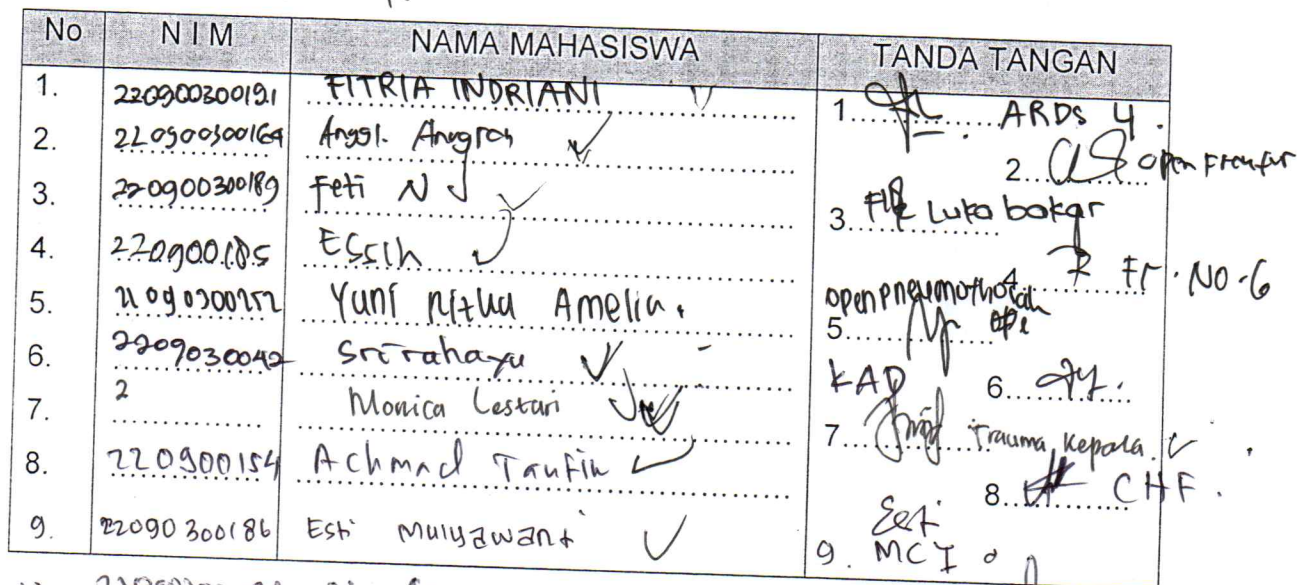 No NIM NAMA MAHASISWA TANDA TANGAN
1. 220900300191 FITRIA INDRIANI 1. ARDS 4.
2. 220900300164 Anggi. Anugrah 2. open Fraktur
3. 220900300189 Feti N 3. Luka bakar
4. 220900185 ESSIh 4. Fr. NO-6
5. Yuni Amelia. openpneumothorak 5.
6. 2209030042 Sri rahayu KAD 6.
7. 2 Monica Lestari 7. Trauma Kepala
8. 220900154 Achmad Taufik 8. CHF.
9. 22090300186 Esti Mulyawanti 9. Esti MCI